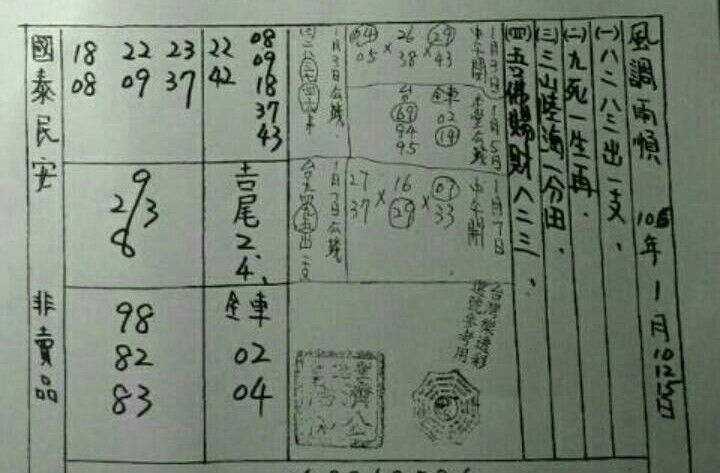 風調雨順
年1月10 12 15日
(一)八二八三出一支、
(二)九死一生再、
(三)三山陸海一分田、
(四)五佛賜財八二三、
1月3日
中午開
29
43
×
26
38
×
04
05
1月3日公錢
1月5日
全車
02
19
台
69
94
95
1月7日
中午開
07
33
×
16
29
×
27
37
1月7日公錢
台灣樂透彩
選號參考用
濟公
22
42
08
09
18
37
43
18 22 23
08 09 37
吉尾
2
4、
9
2/3
8
全車
02
04
98
82
83
國泰民安
非賣品